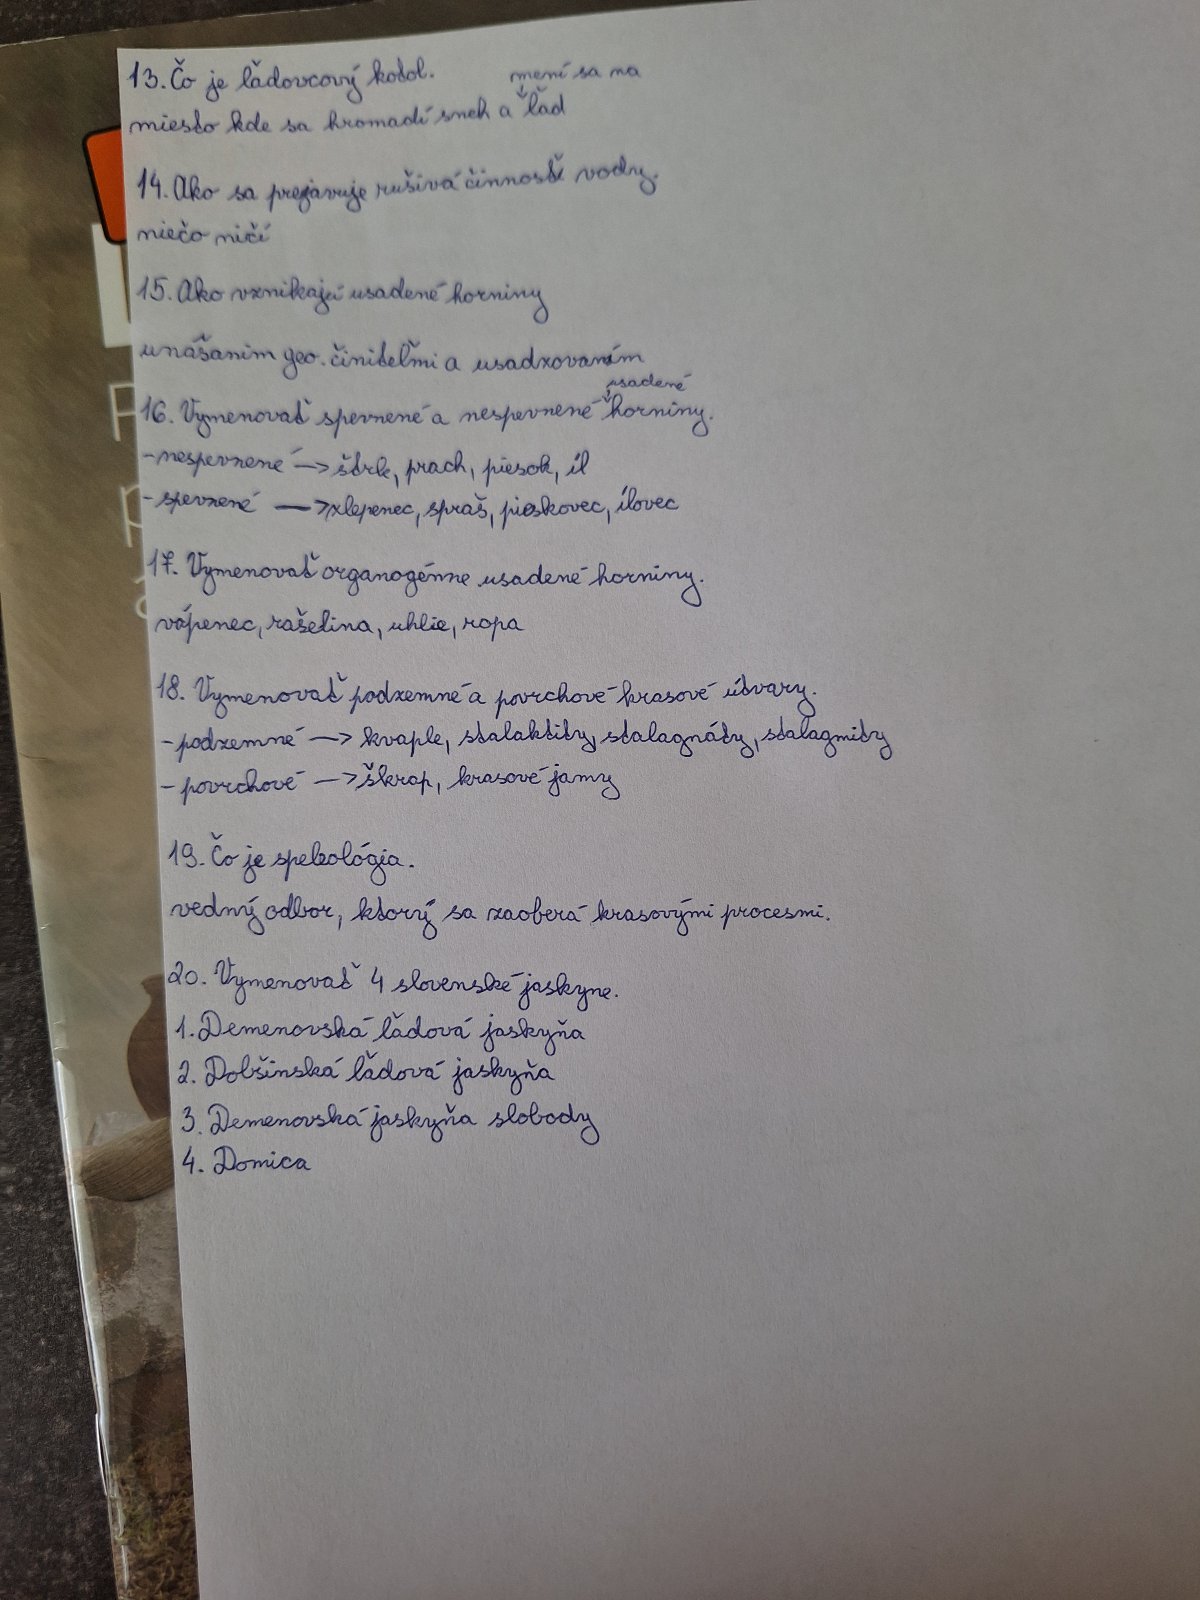 13. Čo je ľadovcový kotol.
mení sa na
miesto kde sa hromadí sneh a ľad
14. Ako sa prejavuje rušivá činnosť vody.
niečo ničí
15. Ako vznikajú usadené horniny
unášaním geo. činiteľmi a usadzovaním
usadené
16. Vymenovať spevnené a nespevnené horniny.
- nespevnené -> štrk, prach, piesok, íl
- spevnené -> zlepenec, spraš, pieskovec, ílovec
17. Vymenovať organogénne usadené horniny.
vápenec, rašelina, uhlie, ropa
18. Vymenovať podzemné a povrchové krasové útvary.
- podzemné -> kvaple, stalaktity, stalagnáty, stalagmity
- povrchové -> škrap, krasové jamy
19. Čo je
vedný odbor, ktorý sa zaoberá krasovými procesmi.
20. Vymenovať 4 slovenské jaskyne.
1. Demenovská ľadová jaskyňa
2. Dobšinská ľadová jaskyňa
3. Demenovská jaskyňa slobody
4. Domica